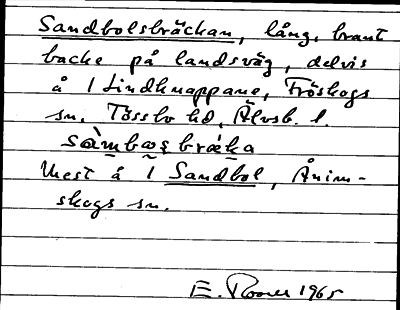 Sandbolsbräckan, lång, brant
backe på landsväg, delvis
å 1 Lindknappane, Fröskogs
sn. Tössbo hd, Älvsb. l.
sàmbøs bræka
Mest å 1 Sandbol, Ånim-
skogs sn.
E. 1965